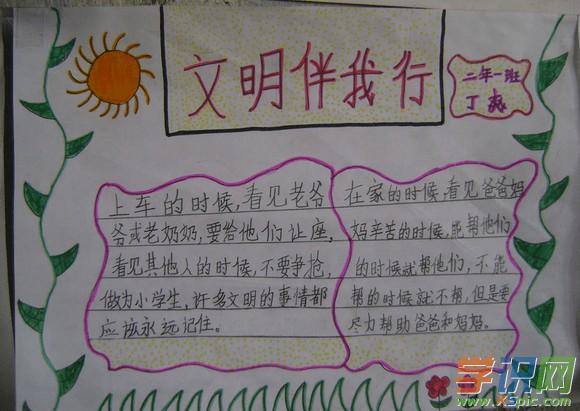 文明伴我行
二年一班
丁
上车的时候,看见老爷
爷或老奶奶,要给他们让座,
看见其他人的时候,不要争抢,
做为小学生,许多文明的事情都
应该永远记住。
在家的时候,看见爸爸妈
妈辛苦的时候,能帮他们
的时候就帮他们,不能
帮的时候就不帮,但是要
尽力帮助爸爸和妈妈。
学识网
www.XSpic.com